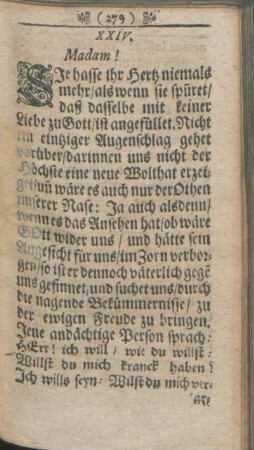 (279)
XXIV.
Madam!
SIe hasse ihr Hertz niemals
mehr/als wenn sie spüret/
daß dasselbe mit keiner
Liebe zu Gott/ist angefüllet. Nicht
ein eintziger Augenschlag gehet
vorüber/darinnen uns nicht der
Höchste eine neue Wolthat erzei-
get/uñ wäre es auch nur der Othen
unserer Nase: Ja auch alsdenn/
wenn es das Ansehen hat/ob wäre
GOtt wider uns/ und hätte sein
Angesicht für uns/im Zorn verbor-
gen/so ist er dennoch väterlich gegē
uns gesinnet/und suchet uns/durch
die nagende Bekümmernisse/ zu
der ewigen Freude zu bringen.
Jene andächtige Person sprach:
HErr! ich will/ wie du willst:
Willst du mich kranck haben?
Ich wills seyn: Wilst du mich ver-